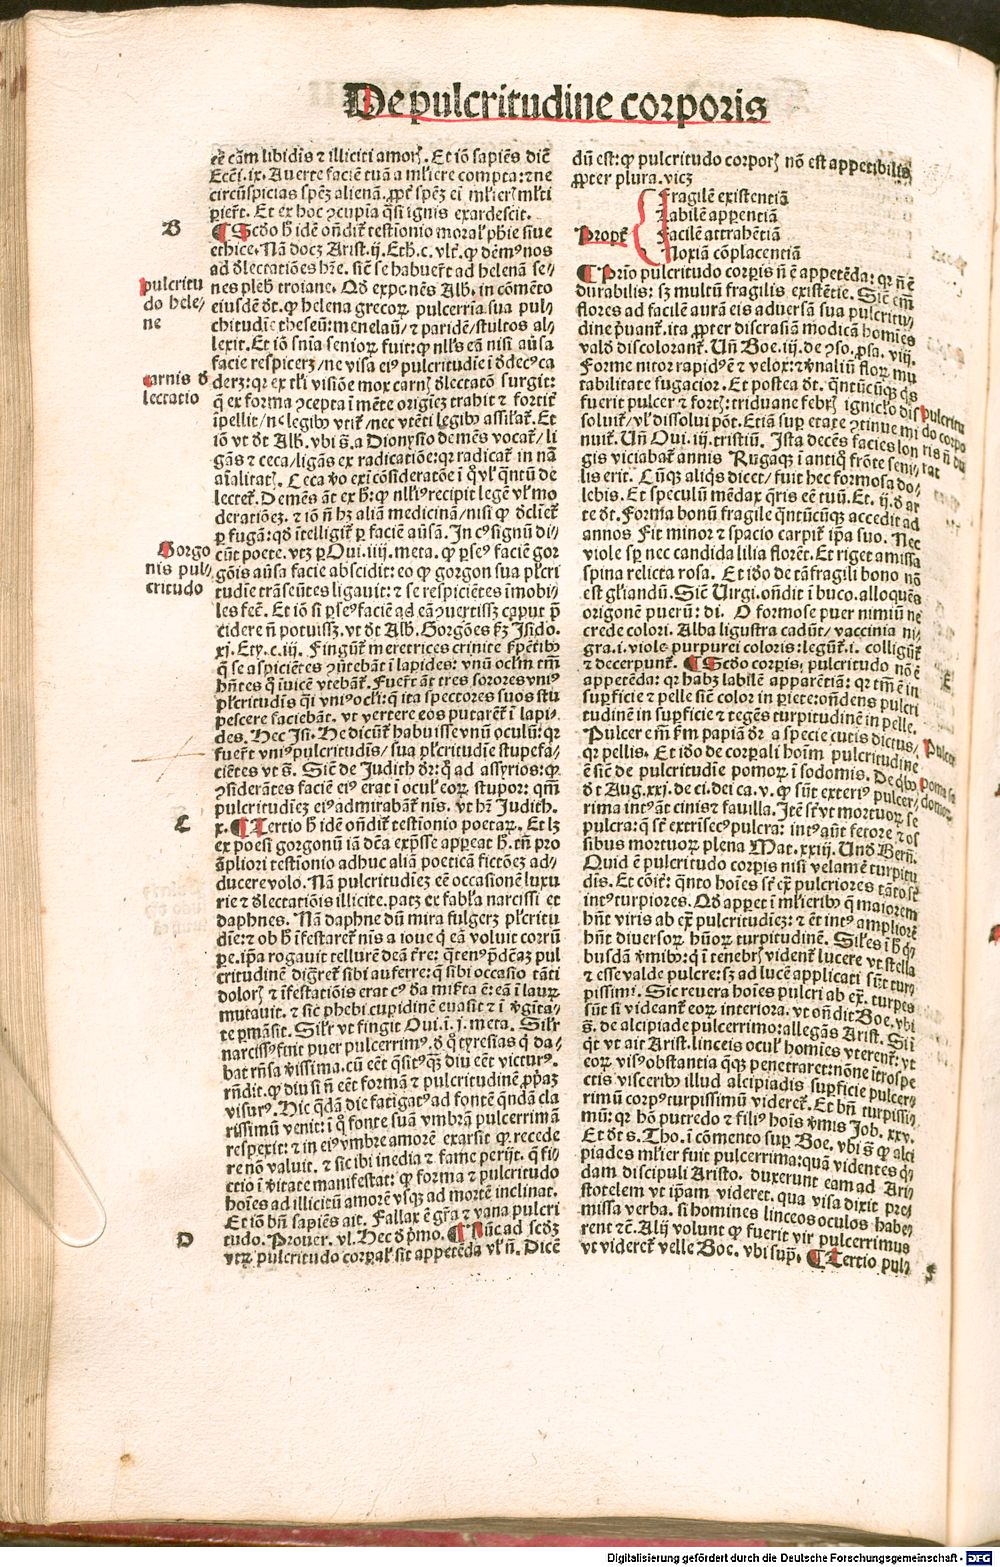 De pulcritudine corporis
eē cām libidīs ⁊ illiciti amorꝭ. Et iō sapiēs dic̄
Ecc̄i.ix. Auerte faciē tuā a ml̄iere compta: ⁊ ne
circūspicias spēꝫ alienā. ꝓpt̄ spēꝫ em̄ ml̄ierꝭ ml̄ti
perier̄t. Et ex hoc ↄcupia q̄si ignis exardescit.
B
¶ Scd̓o h̄ idē on̄dit̄ testīonio moral̓ ph̄ie siue
ethice. Nā docꝫ Arist.ij. Eth.c. vlt̄. ꝙ dēm̄us nos
ad d̓lectatiōes hr̄e. sic̄ se habuer̄t ad helenā se⸗
pulcritu
do hele⸗
ne
nes pleb̓ troiane. Qd̓ expōnēs Alb̓. in cōmēto
eiusdē d̄t. ꝙ helena grecoꝝ pulcerria sua pul⸗
chitudīe theseū: menelaū/ ⁊ paridē/ stultos al⸗
lexit. Et iō snīa senioꝝ fuit: ꝙ nll̓s eā nisi au̓sa
facie respicerꝫ/ ne visa ei⁹ pulcritudīe ī d̓dec⁹ ca
carnis d̓
lectatio
derꝫ: qr ex tl̓i visiōne mox carnꝭ d̓lectatō surgit:
q̄ ex forma ↄcepta ī mēte origīeꝫ trahit ⁊ fortit̄
īpellit/ ne legibꝰ vtit̄/ nec vtēti legibꝰ assil̓at̄. Et
iō vt d̄t Alb̓. vbi s̄. a Dionysio demēs vocat̄/ li
gās ⁊ ceca/ ligās ex radicatiōe: qr radicat̄ in nā
aīalitatꝭ. Ceca v̓o exi ↄsideratōe ī q̓ vl̓ q̄ntū de
lectet̄. Demēs āt ex h̄: ꝙ nll̓⁹ recipit legē vl̓ mo
deratiōeꝫ. ⁊ iō n̄ hꝫ aliā medicinā/ nisi ꝙ d̓clīet̄
ꝑ fugā: qd̓ ītelligit̄ ꝑ faciē au̓sā. In c⁹ signū di⸗
Gorgo
nis pul⸗
critudo
cūt poete. vtꝫ ꝑ Oui.iiii.meta. ꝙ ꝑse⁹ faciē gor
gōis au̓sa facie abscidit: eo ꝙ gorgon sua pl̓cri
tudīe trāseūtes ligauit: ⁊ se respiciētes īmobi⸗
les fec̄. Et iō si ꝑse⁹ faciē ad eā ↄuertissꝫ caput p̄
cidere n̄ potuissꝫ. vt d̄t Alb̓. Gorgōes ẜꝫ Isido.
xj. Ety.c.iij. Fingūt̄ meretrices crinite ẜpētibꝰ
q̄ se aspiciētes ↄūtebāt ī lapides: vnū ocl̓m tm̄
hn̄tes q̄ īuicē vtebāt̄. Fuer̄t āt tres sorores vni⁹
pl̓critudīs q̄si vni⁹ ocl̓i: q̄ ita spectores suos stu
pescere faciebāt. vt vertere eos putarēt̄ ī lapi⸗
des. Hec Isi. He dicūt̄ habuisse vnū oculū: qr
fuer̄t vni⁹ pulcritudīs/ sua pl̓critudīe stupefa⸗
ciētes vt s̄. Sic̄ de Judith d̄r: q̓ ad assyrios: ꝙ
ↄsiderātes faciē ei⁹ erat ī ocul̓ eoꝝ stupor: qm̄
pulcritudīeꝫ ei⁹ admirabāt̄ nīs. vt hr̄ Judith.
C
x. ¶ Tertio h̄ idē on̄dit̄ testīonio poetaꝝ. Et lꝫ
ex poesi gorgonū iā dc̄a exp̄sse appeat h̄. tn̄ pro
āpliori testīonio adhuc aliā poeticā fictōeꝫ ad⸗
ducere volo. Nā pulcritudīeꝫ eē occasionē luxu
rie ⁊ d̓lectatiōis illicite. patꝫ ex fabl̓a narcissi et
daphnes. Nā daphne dū mira fulgerꝫ pl̓critu
dīe: ⁊ ob h̄ īfestaret̄ nīs a ioue q̓ eā voluit corrū
pe. ip̄a rogauit tellurē deā t̄re: q̄ten⁹ p̄dēaꝫ pul
critudinē digr̄et̄ sibi auferre: q̄ sibi occasio tāti
dolorꝭ ⁊ īfestatiōis erat c⁹ da mīs̄ta ē: eā ī laurꝫ
mutauit. ⁊ sic phebi cupidinē euasit ⁊ ī v̓gīta⸗
te ꝑmāsit. Sil̓r vt fingit Oui.i.j. meta. Sil̓r
narciss⁹ fuit puer pulcerrim⁹. d̓ q̓ tyresias q̄ da⸗
bat rn̄sa v̓issima. cū eēt q̄sit⁹ qꝫ diu eēt victur⁹.
rn̄dit. ꝙ diu si n̄ eēt formā ⁊ pulcritudinē ꝓp̄aꝫ
visur⁹. Hic q̄dā die fatigat⁹ ad fontē q̄ndā cla
rissimū venit: ī q̄ fonte suā vmbrā pulcerrimā
respexit: ⁊ in ei⁹ vmbre amorē exarsit ꝙ recede
re nō valuit. ⁊ sic ibi inedia ⁊ fame perijt. q̄ fi⸗
ctio ī v̓itate manifestat: ꝙ forma ⁊ pulcritudo
hoīes ad illicitū amorē vsqꝫ ad mortē inclinat.
Et iō bn̄ sapiēs ait. Fallax ē gr̄a ⁊ vana pulcri
D
tudo. Prouer. vl. Hec d̓ p̄mo. ¶ Nūc ad scd̓ꝫ
vtꝝ pulcritudo corꝑal̓ sit appetēda vl̓ n̄. Dicē
dū est: ꝙ pulcritudo corporꝭ nō est appetibilis
ꝓpter plura. vicꝫ
Propt̄
Fragilē existentiā
Labilē apparentiā
Facilē attrahētiā
Noxiā cōplacentiā
¶ Prīo pulcritudo corpīs n̄ ē appetēda: qr n̄ ē
durabilis: sꝫ multū fragilis existētie. Sic̄ em̄
flores ad facilē aurā eis aduersā sua pulcritu⸗
dine p̄uant̄. ita ꝓpter discrasiā modicā homīes
vald̓ discolorant̄. Vn̄ Boe.iij. de ↄso. ꝓsa. viij.
Forme nitor rapid⁹ ē ⁊ velox: ⁊ v̓naliū floꝝ mu
tabilitate fugacior. Et postea d̄t. q̄ntūcūqꝫ q̄s
fuerit pulcer ⁊ fortꝭ: triduane febrꝭ ignicl̓o dis
pulcritu
do corpo
ris n̄ du
rat
soluit̄/ vl̓ dissolui pōt. Etiā suꝑ etate ↄtinue mi
nuit̄. Vn̄ Oui.iij.tristiū. Ista decēs facies lon
gis viciabat̄ annis Rugaqꝫ ī antiq̄ frōte seni⸗
lis erit. Cūqꝫ aliq̓s dicet/ fuit hec formosa do⸗
lebis. Et speculū mēdax q̄ris eē tuū. Et.ij.d̓ ar
te d̄t. Forma bonū fragile q̄ntūcūqꝫ accedit ad
annos Fit minor ⁊ spacio carpit̄ ip̄a suo. Nec
viole sꝑ nec candida lilia florēt. Et riget amissa
spina relicta rosa. Et id̓o de tā fragili bono nō
est gl̓iandū. Sic̄ Virgi.on̄dit ī buco. alloquēs
origonē puerū: di. O formose puer nimiū ne
crede colori. Alba ligustra cadūt/ vaccinia ni⸗
gra.i. viole purpurei coloris: legūt̄.i. colligūt̄
E
⁊ decerpunt̄. ¶ Scd̓o corpis; pulcritudo nō ē
appetēda: qr habꝫ labilē apparētiā: qr tm̄ ē in
suꝑficie ⁊ pelle sic̄ color in piete: on̄dens pulcri
tudinē in suꝑficie ⁊ tegēs turpitudinē in pelle.
Pulcer em̄ ẜm papiā d̄r a specie cutis dictus/
Pulcer
qr pellis. Et id̓o de corpali hoīm pulcritudine
ē sic̄ de pulcritudīe pomoꝝ ī sodomis. De q̓bꝰ
poma sa
domoꝝ
d̄t Aug.xxj.de ci.dei ca.v. ꝙ sūt exteri⁹ pulcer⸗
rima int⁹ āt cinis ⁊ fauilla. Itē sr̄t vt mortuoꝝ se
pulcra: q̄ st̄ extrisec⁹ pulcra: int⁹ aūt fetore ⁊ os
sibus mortuoꝝ plena Mat.xxiij. Vnd̓ Bern̄.
Quid ē pulcritudo corpīs nisi velamē turpitu
dīs. Et cōit̄: q̄nto hoīes st̄ ex̄ pulcriores tāto st̄
int⁹ turpiores. Qd̓ apparet ī ml̄ieribꝰ q̄ maiorem
hn̄t viris ab ex̄ pulcritudīeꝫ: ⁊ ēt int⁹ ampliorē
hn̄t diuersoꝝ hūoꝝ turpitudinē. Sil̓es ī h̄ q̓⸗
busdā v̓mibꝰ: q̄ ī tenebrꝭ vident̄ lucere vt stella
⁊ esse valde pulcre: sꝫ ad lucē applicati sūt tur⸗
pissimi. Sic reuera hoīes pulcri ab ex̄. turpes
sūt si videant̄ eoꝝ interiora. vt on̄dit Boe. vbi
s̄. de alcipiade pulcerrimo: allegās Arist. Si ī
q̄t vt ait Arist. linceis ocul̓ homīes vterent̄: vt
eoꝝ vis⁹ obstantia q̄qꝫ penetraret: nōne ītrospe
ctis visceribꝰ illud alcipiadis suꝑficie pulcer⸗
rimū corp⁹ turpissimū videret̄. Et bn̄ turpissi⸗
mū: qr hō putredo ⁊ fili⁹ hoīs v̓mis Job. xxv.
Et d̄t s. Tho. ī cōmento suꝑ Boe. vbi s̄ ꝙ alci
piades ml̄ier fuit pulcerrima: quā videntes q̓⸗
dam discipuli Aristo. duxerunt eam ad Ari⸗
stotelem vt ip̄am videret. qua visa dixit pre⸗
missa verba. si homines linceos oculos habe⸗
rent ⁊c̄. Alij volunt ꝙ fuerit vir pulcerrimus
vt videret̄ velle Boe. vbi sup̄. ¶ Tertio pul⸗
F